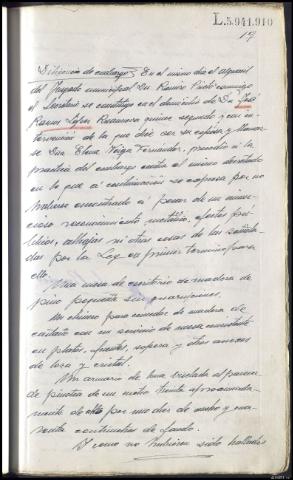 L.5.941.910
17
Diligencia de embargo. En el mismo día el alguacil
del Juzgado municipal Don Ramiro conmigo
el Secretario se constituyó en el domicilio de Don José
Ramón López quince segundo y con in-
tervención de la que dice ser su esposa y llamar-
se Doña Elena Veiga Fernández, procedió a la
practica del embargo contra el mismo decretado
en lo que a continuación se expresa por no
haberse encontrado a pesar de un minu-
cioso reconocimiento metálico, efectos pú-
blicos, alhajas ni otras cosas de las señala-
das por la Ley en primer término para
ello.
Una mesa de escritorio de madera de
pino pequeña sin guarniciones.
Un chinero para comedor de madera de
castaño con un servicio de mesa consistente
en platos, fuentes, sopera y otros enseres
de loza y cristal.
Un armario de luna biselada al parecer
de pinotea de un metro treinta aproximada-
mente de alto por uno diez de ancho y cua-
renta centímetros de fondo.
Y como no hubiesen sido hallados